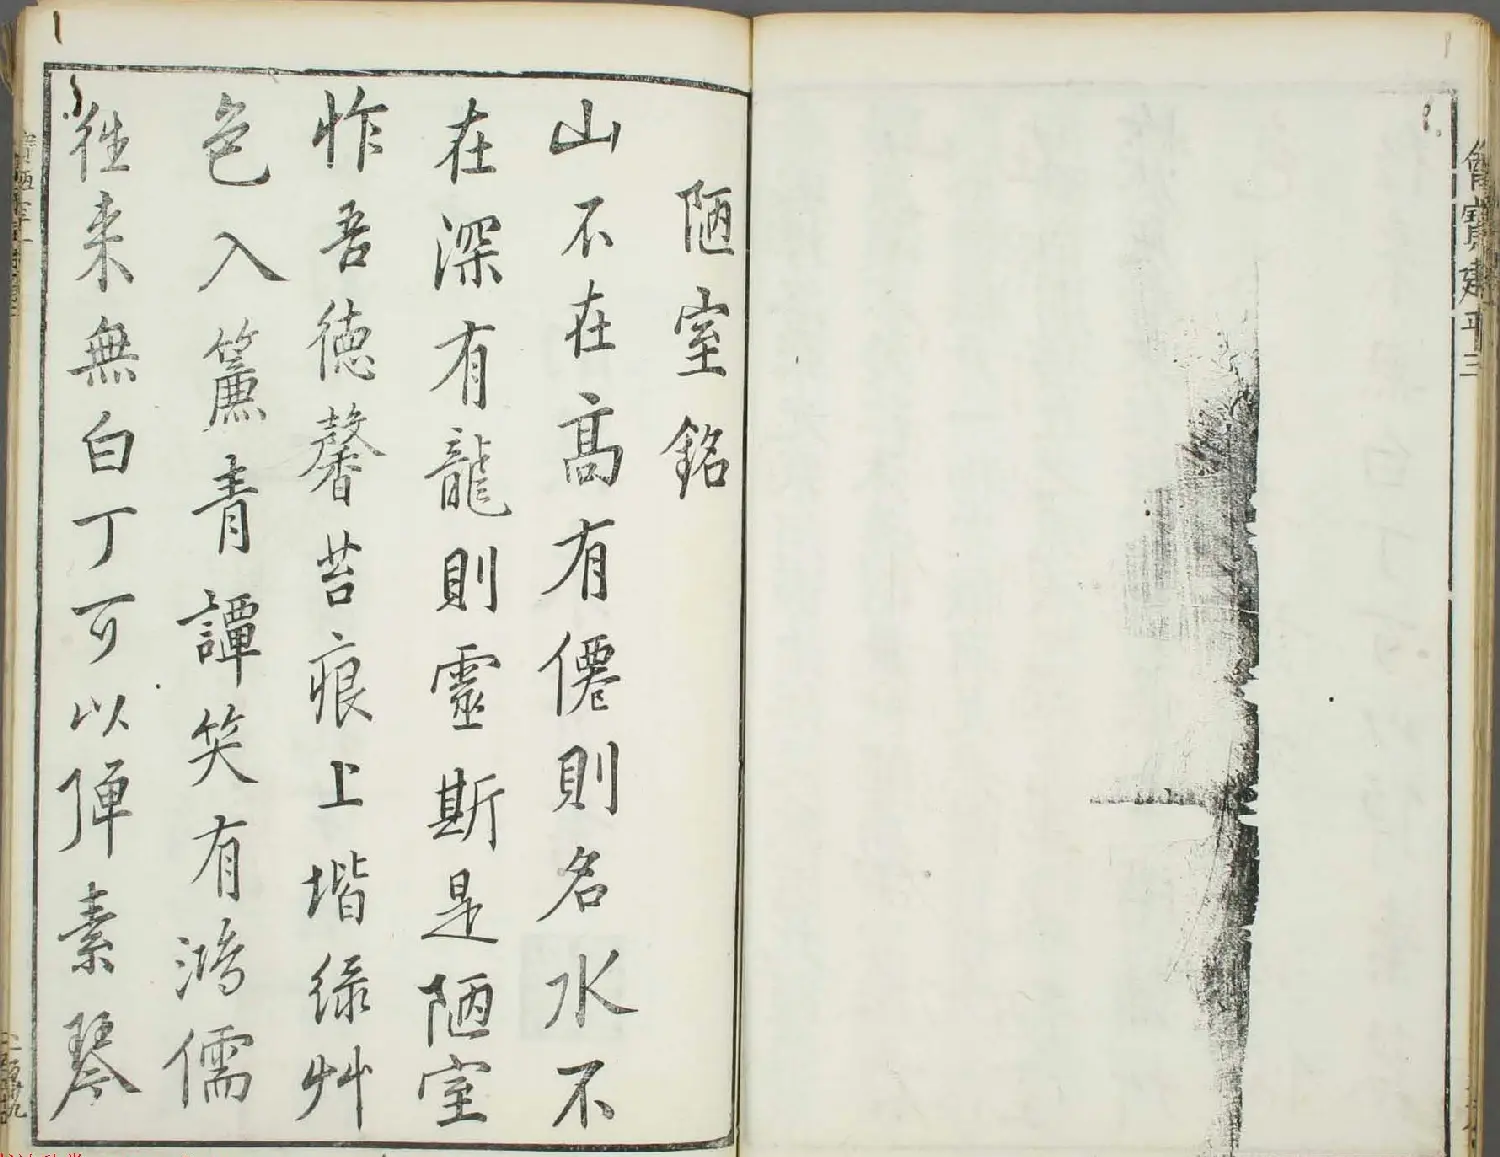 陋室銘
山不在高有僊則名水不
在深有龍則靈斯是陋室
怍吾徳馨苔痕上堦緑艸
色入簾青譚笑有鴻儒
徃来無白丁可以弹素琴